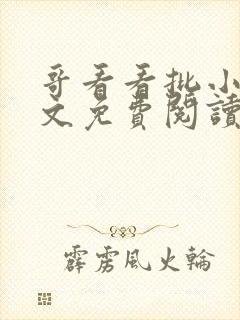 哥看看批小
文免費閱讀
霹雳風火輪